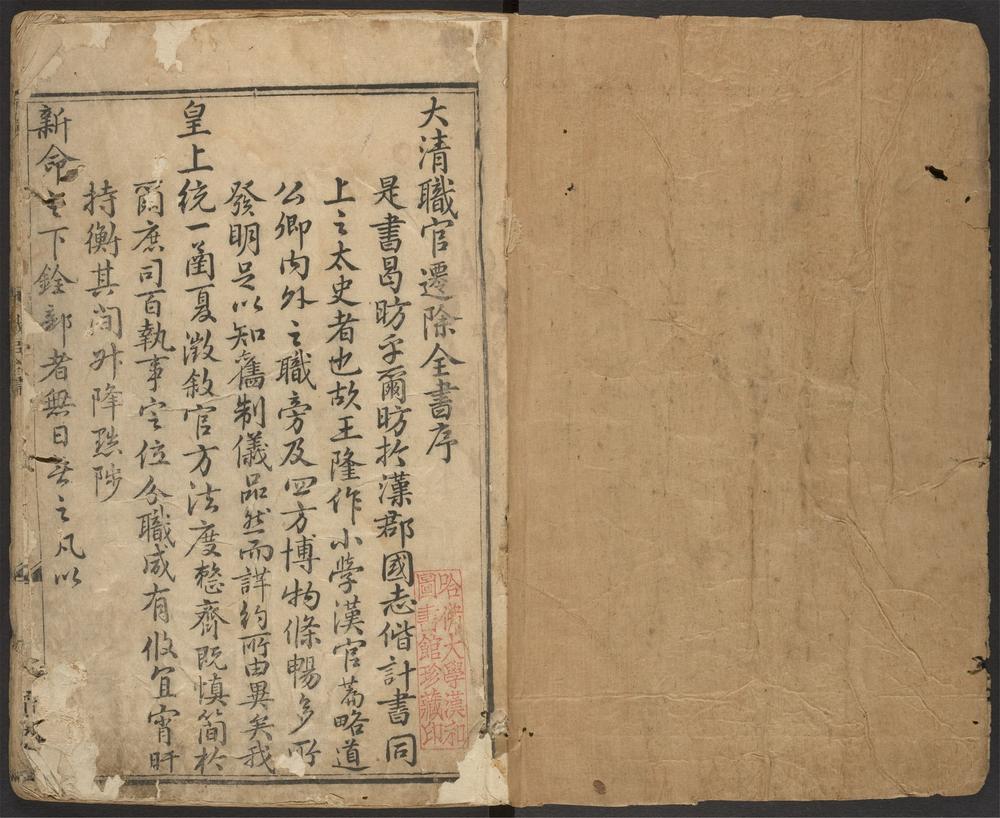 大清職官遷除全書序
是書曷昉乎爾昉於漢郡國志偕計書同
上之太史者也故王隆作小學漢官篇略道
公卿內外之職旁及四方博物條暢多所
發明足以知舊制儀品然而詳約所由異矣我
皇上統一函夏澂敘官方法度整齊既慎簡於
爾庶司百執事定位分職咸有攸宜宵旰
持衡其間升降黜陟
新命之下銓部者無日無之凡以
哈佛大學漢和
圖書館珍藏印